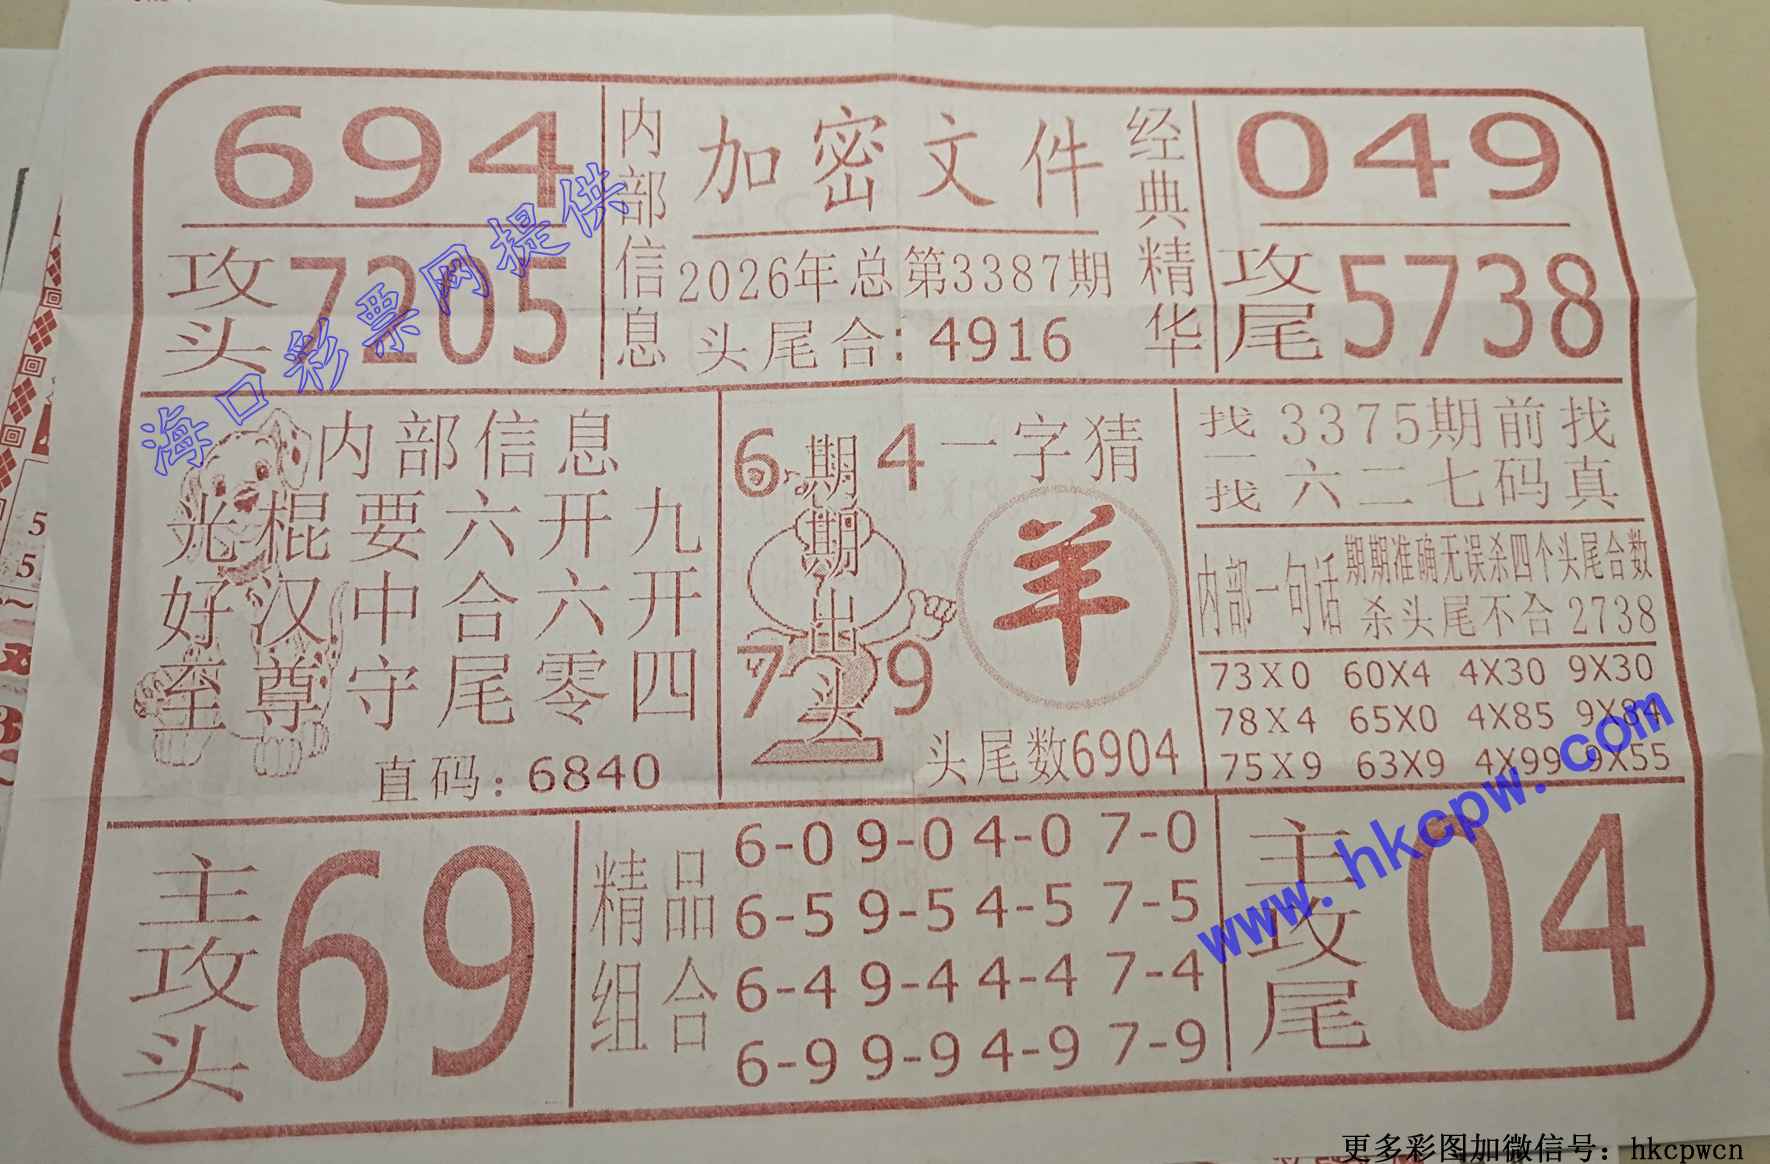 694
攻头 7205
内部信息
加密文件
2026年总第3387期
头尾合:4916
经典精华
049
攻尾 5738
海口彩票网提供
内部信息
光棍要六开九
好汉中合六开
至尊守尾零四
直码:6840
6 4
期期出头
7 9
一字猜
羊
头尾数6904
找一找
3375期前找
六二七码真
内部一句话
期期准确无误杀四个头尾合数
杀头尾不合2738
73X0 60X4 4X30 9X30
78X4 65X0 4X85 9X84
75X9 63X9 4X99 9X55
主攻头 69
精品组合
6-0 9-0 4-0 7-0
6-5 9-5 4-5 7-5
6-4 9-4 4-4 7-4
6-9 9-9 4-9 7-9
主攻尾 04
www.hkcpw.com
更多彩图加微信号：hkcpwcn